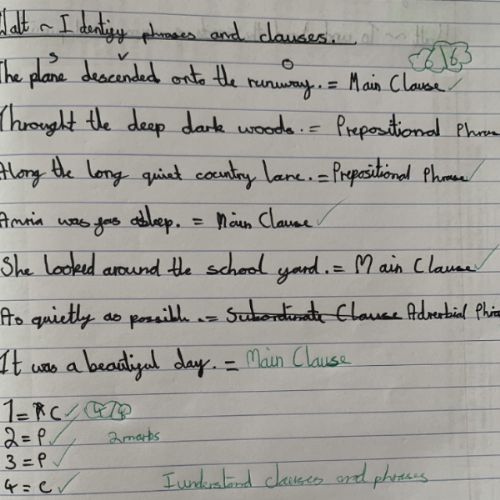 Walt ~ Identify phrases and clauses.
6/6
S V O
The plane descended onto the runway. = Main Clause ✓
Throught the deep dark woods. = Prepositional Phrase
Along the long quiet country lane. = Prepositional Phrase ✓
was asleep. = Main Clause ✓
She looked around the school yard. = Main Clause ✓
As quietly as possible. = Subordinate Clause Adverbial Phra
It was a beautiful day. = Main Clause
1 = C ✓ 4/4
2 = P ✓ 2 marks
3 = P ✓
4 = C ✓ I understand clauses and phrases